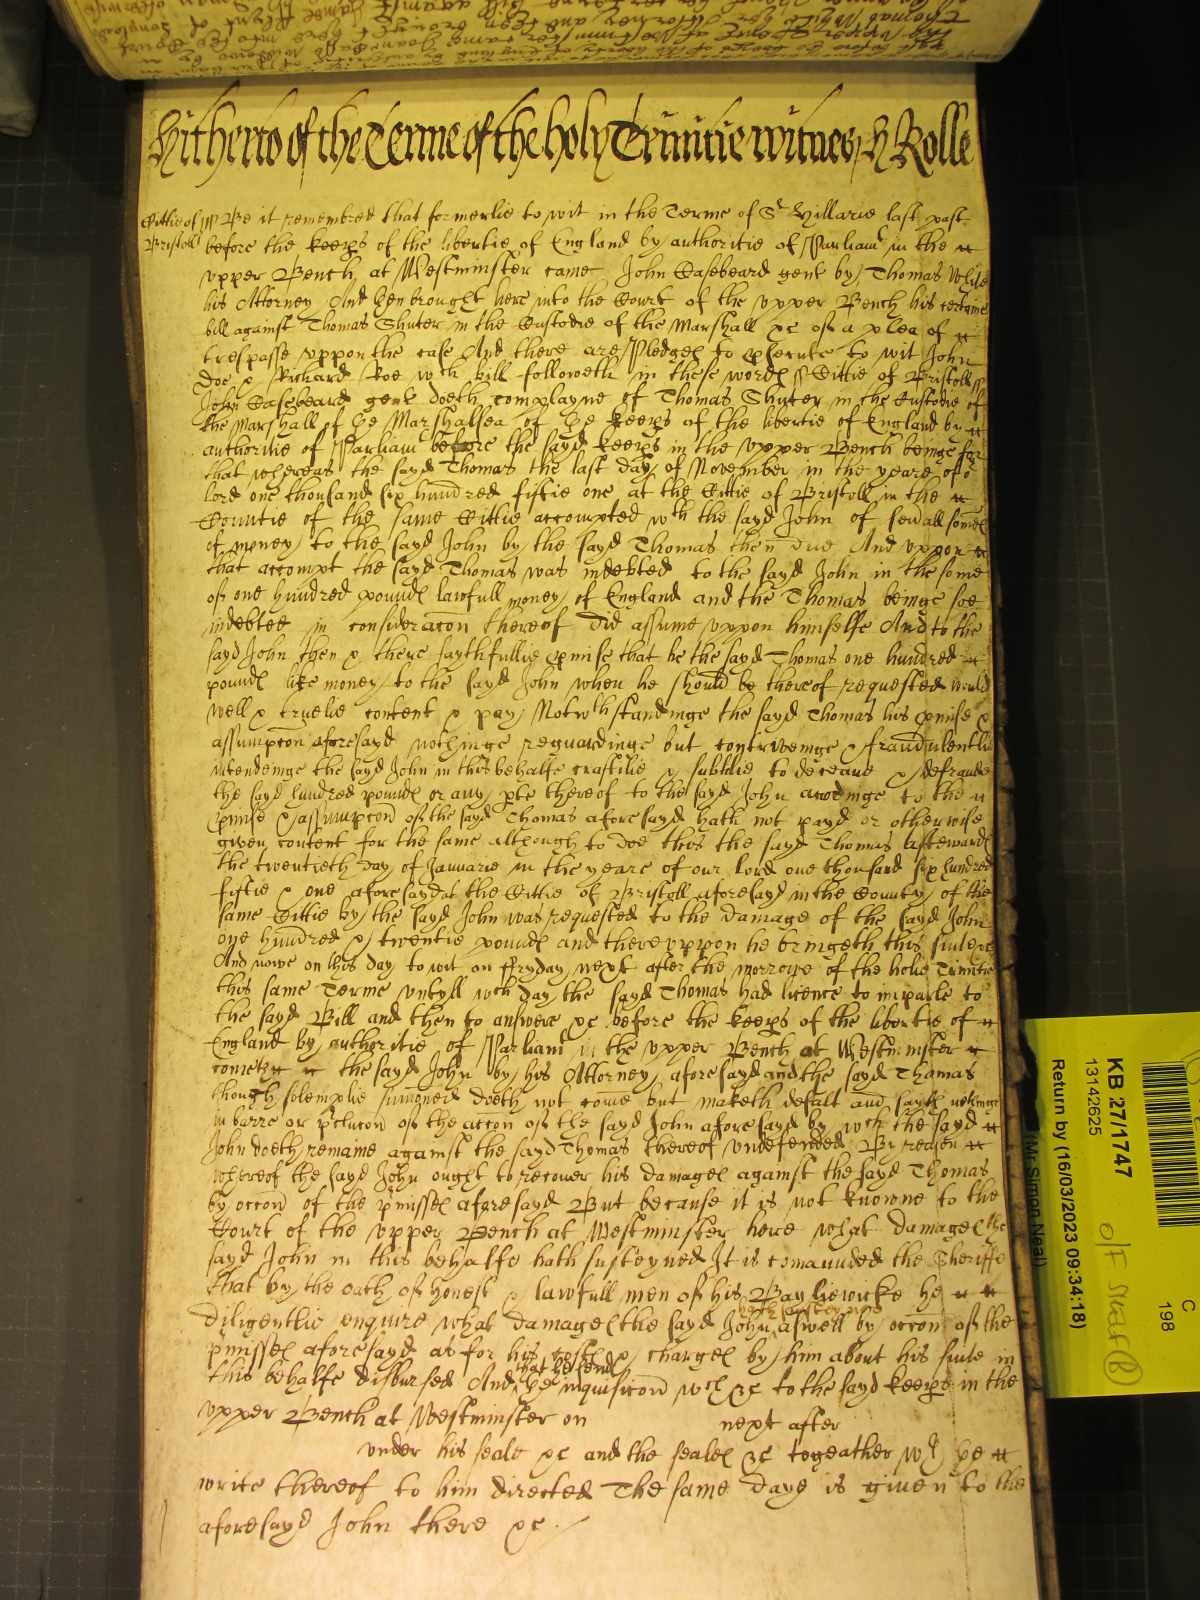 Hitherto of the Terme of the holy Trinitie witnes H Rolle
Cittie of ss Be it remembred that formerlie to wit in the Terme of St Hillarie last past
Bristoll before the keeps of the libertie of England by authoritie of Parliamt in the
upper Bench at Westminster came John Casebeard gent by Thomas White
his Attorney And then brought here into the Court of the upper Bench his certaine
bill against Thomas Shuter in the Custodie of the Marshall &c of a plea of
trespasse uppon the case And there are Pledges to psecute to wit John
Doe & Richard Roe wch bill followeth in these words ss Cittie of Bristoll ss
John Casebeard gent doeth complayne of Thomas Shuter in the Custodie of
the Marshall of the Marshalsea of the keeps of the libertie of England by
authoritie of Parliamt before the sayd keeps in the upper Bench beinge for
that whereas the sayd Thomas the last day of November in the yeare of or
lord one thousand six hundred fiftie one at the Cittie of Bristoll in the
Countie of the same Cittie accompted wth the sayd John of sevall somes
of money to the sayd John by the sayd Thomas then due And uppon
that accompt the sayd Thomas was indebted to the sayd John in the some
of one hundred pounds lawfull money of England and the Thomas beinge soe
indebted in consideracon thereof did assume uppon himselfe And to the
sayd John then & there faythfullie pmise that he the sayd Thomas one hundred
pounds like money to the sayd John when he should be thereof requested would
well & truelie content & pay Notwthstandinge the sayd Thomas his pmise &
assumpcon aforesayd nothinge reguardinge but contriveinge & fraudulentlie
intendeinge the sayd John in this behalfe craftilie & subtilie to deceave & defraude
the sayd hundred pounds or any pte thereof to the sayd John accordinge to the
pmise & assumpcon of the sayd Thomas aforesayd hath not payd or otherwise
given content for the same although to doe this the sayd Thomas afterwards
the twentieth day of Januarie in the yeare of our lord one thousand six hundred
fiftie & one aforesayd at the Cittie of Bristoll aforesayd in the County of the
same Cittie by the sayd John was requested to the damage of the sayd John
one hundred & twentie pounds and thereuppon he bringeth this suite &c
And nowe on this day to wit on ffryday next after the morrowe of the holie Trinitie
this same Terme untyll wch day the sayd Thomas had licence to imparle to
the sayd Bill and then to answere &c before the keeps of the libertie of
England by authoritie of Parliamt in the upper Bench at Westminster
cometh the sayd John by his Attorney aforesayd and the sayd Thomas
though solemplie sumoned doeth not come but maketh defalt and sayth nothinge
in barre or pclucon of the accon of the sayd John aforesayd by wch the sayd
John doeth remaine against the sayd Thomas thereof undefended By reason
whereof the sayd John ought to recover his damages against the sayd Thomas
by occon of the pmisses aforesayd But because it is not knowne to the
Court of the upper Bench at Westminster here what damages the
sayd John in this behalfe hath susteyned It is comaunded the Sheriffe
that by the oath of honest & lawfull men of his Bayliewicke he
diligentlie enquire what damages the sayd John hath susteyned aswell by occon of the
pmisses aforesayd as for his costs & charges by him about his suite in
this behalfe disbursed And that he send the inquisicon wch &c to the sayd keeps in the
upper Bench at Westminster on next after
under his seale &c and the seales &c togeather wth the
write thereof to him directed The same daye is given to the
aforesayd John there &c
KB 27/1747
13142625
Return by (16/03/2023 09:34:18)
(Mr Simon Neal)
C
198